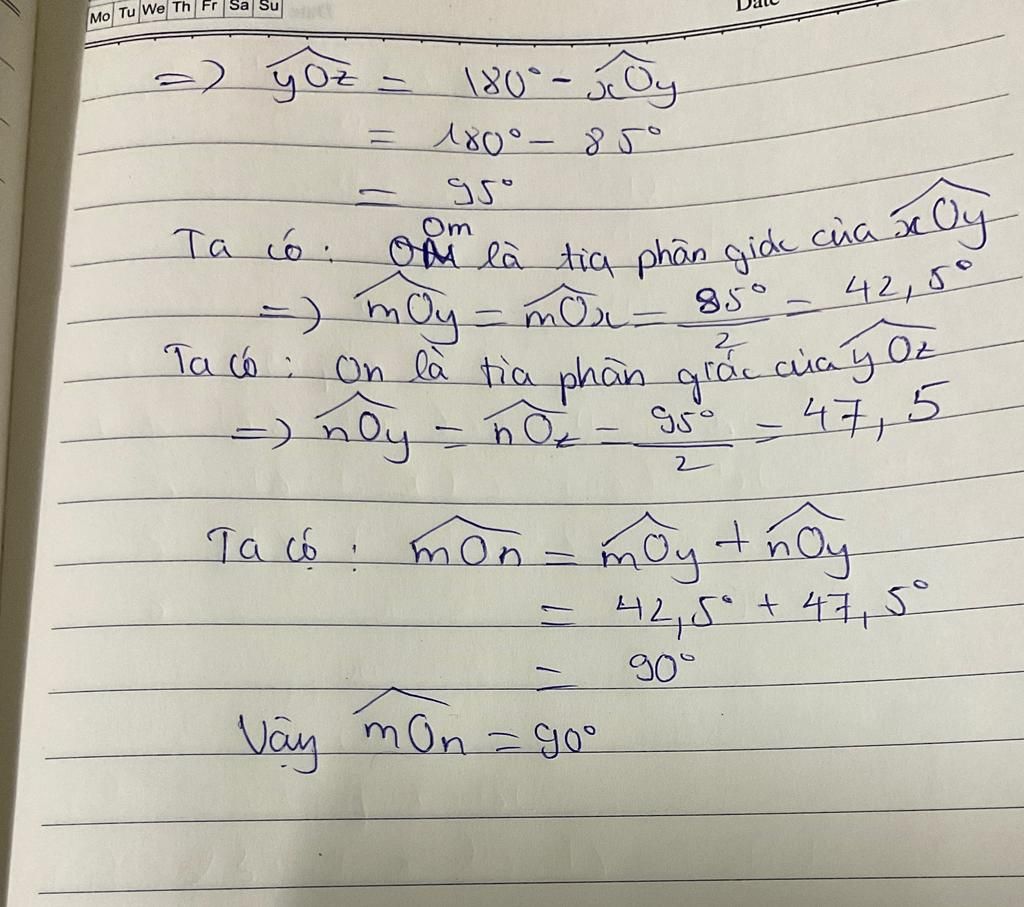 Mo Tu We Th Fr Sa Su
Date
=> $\widehat{yOz}$ = 180° - $\widehat{xOy}$
= 180° - 85°
= 95°
Om
Ta có: là tia phân giác của $\widehat{xOy}$
=> $\widehat{mOy}$ = $\widehat{mOx}$ = $\frac{85°}{2}$ = 42,5°
Ta có: On là tia phân giác của $\widehat{yOz}$
=> $\widehat{nOy}$ = $\widehat{nOz}$ = $\frac{95°}{2}$ = 47,5
Ta có: $\widehat{mOn}$ = $\widehat{mOy}$ + $\widehat{nOy}$
= 42,5° + 47,5°
= 90°
Vậy $\widehat{mOn}$ = 90°